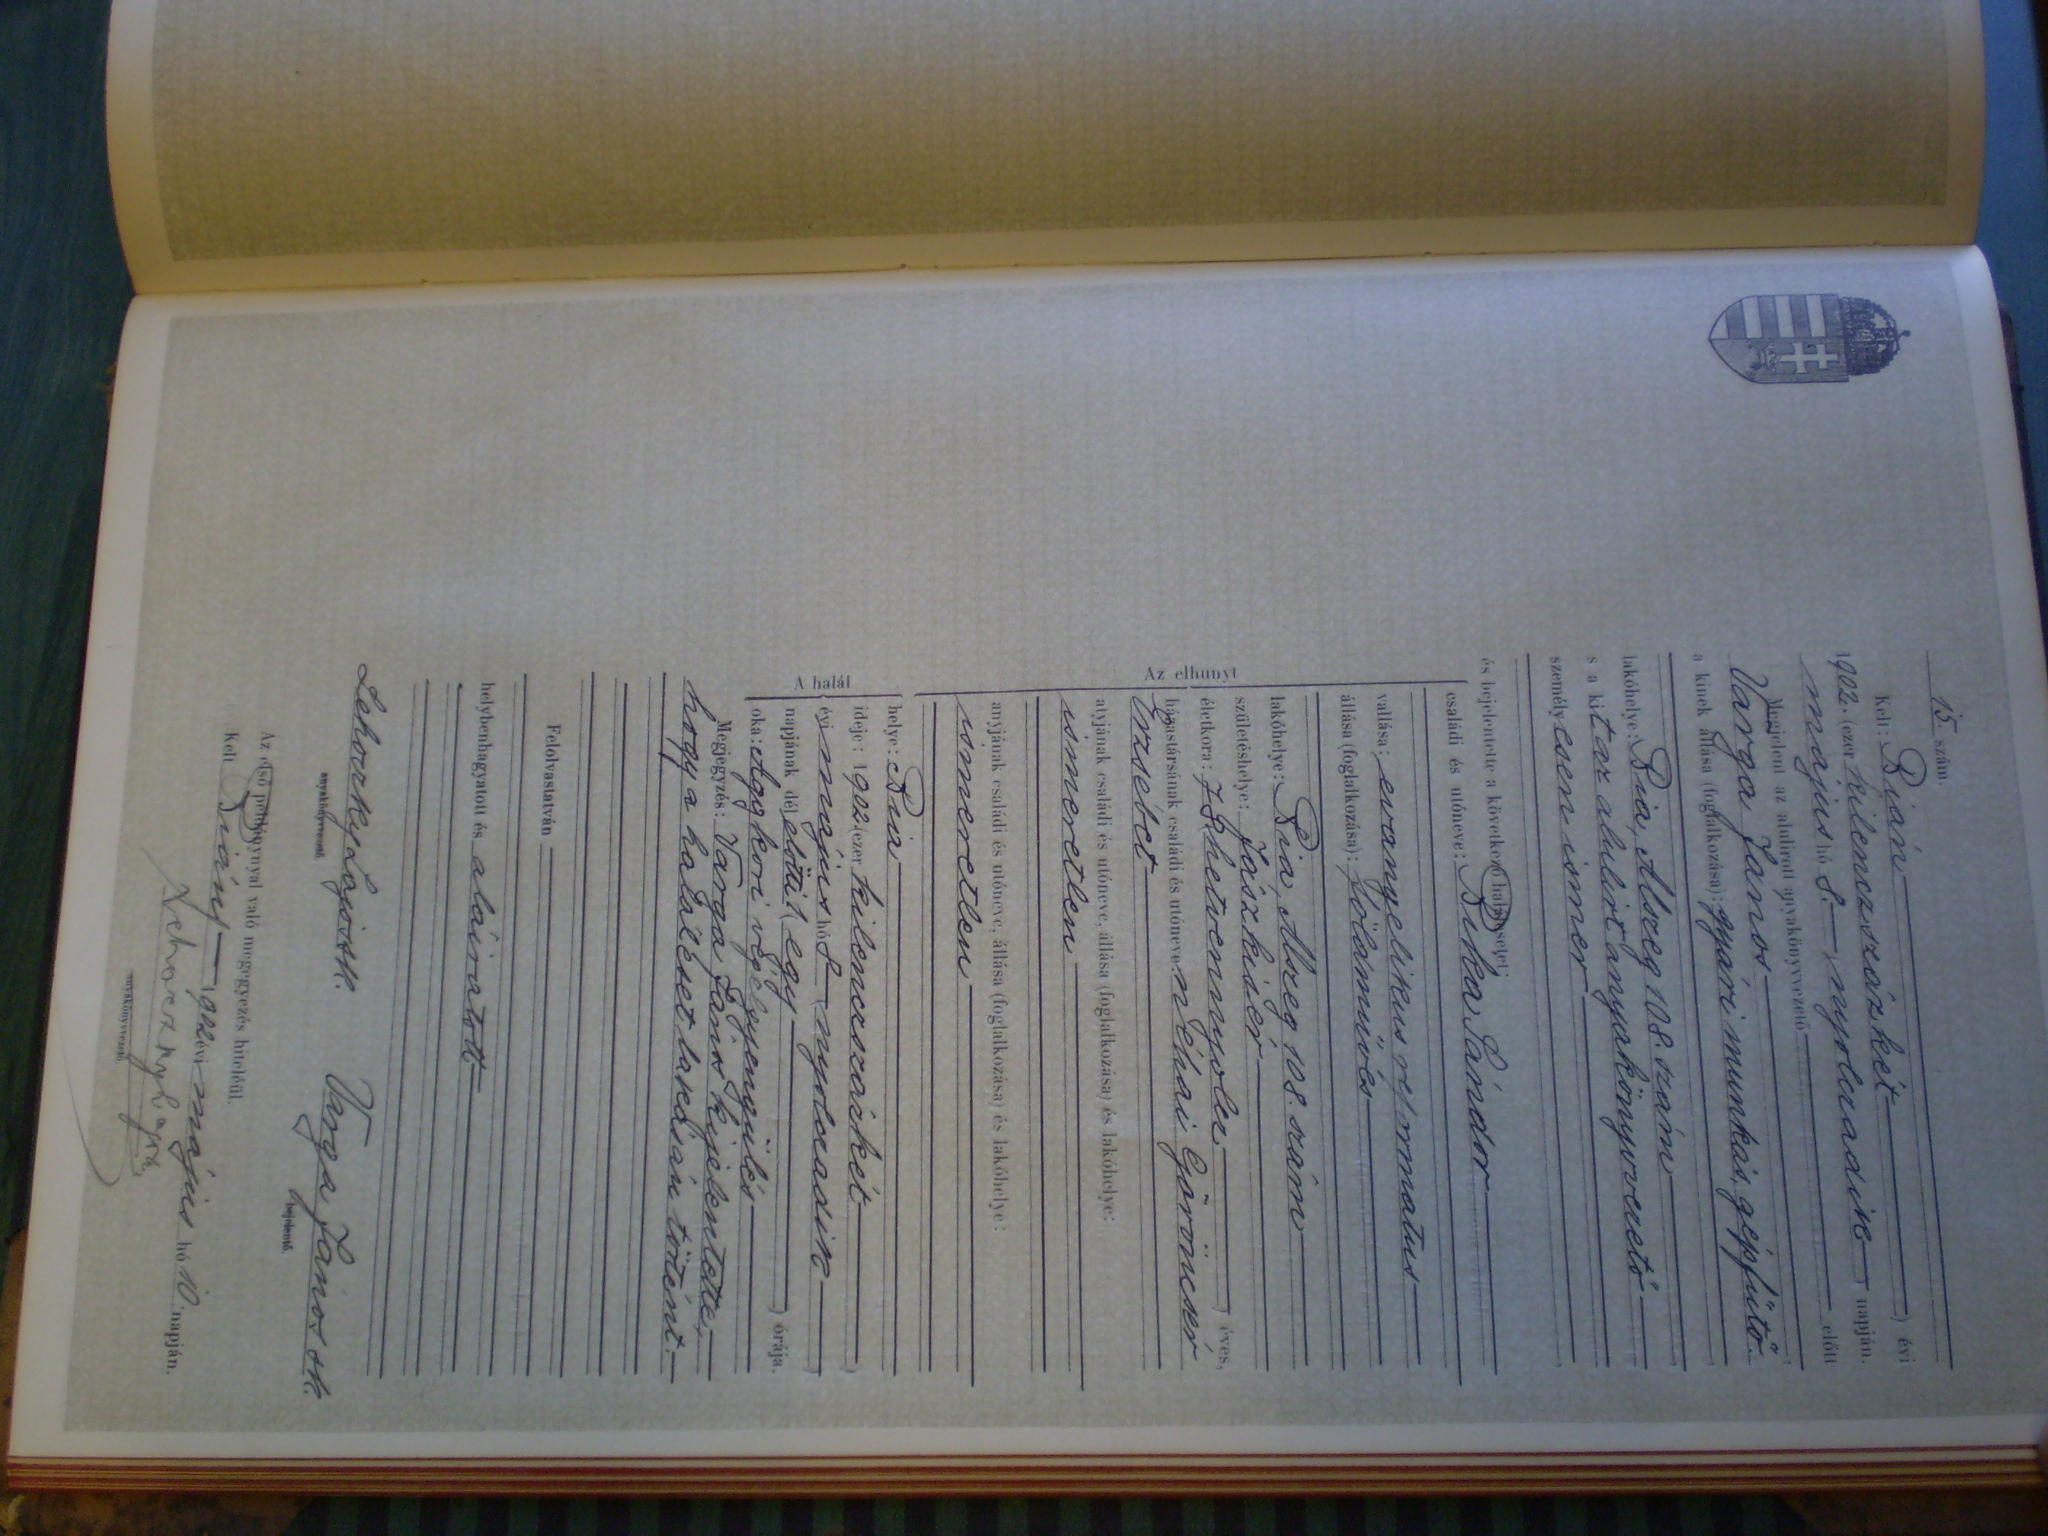 15. szám.
Kelt: Bián (évi
1902. (ezer kilenczszázkét) évi
május hó 8. (nyolczadik) napján.
Megjelent az alulirott anyakönyvvezető előtt
Varga János
a kinek állása (foglalkozása): gyári munkás, gépfütő
lakóhelye: Bia, Alszeg 108. szám
s a kit az alulirt anyakönyvvezető
személyesen ismer
és bejelentette a következő halálesetet:
családi és utóneve: Bika Sándor
vallása: evangelikus reformatus
állása (foglalkozása): földmüvés
lakóhelye: Bia, Alszeg 108. szám
születéshelye: Jászkisér
életkora: 78 (hetvennyolcz) éves,
házastársának családi és utóneve: néhai Göröncsér
Erzsébet
atyjának családi és utóneve, állása (foglalkozása) és lakóhelye:
ismeretlen
anyjának családi és utóneve, állása (foglalkozása) és lakóhelye:
ismeretlen
Az elhunyt
helye: Bia
ideje: 1902 (ezer kilenczszázkét)
évi május hó 8 (nyolczadik)
napjának délelőtti 1 (egy) órája.
oka: Aggkori végelgyengülés
A halál
Megjegyzés: Varga János kijelentette,
hogy a haláleset lakásán történt.
Felolvastatván
helybenhagyatott és aláiratott.
Lehoczky Lajos sk. Varga János sk.
anyakönyvvezető. bejelentő.
Az első példánynyal való megegyezés hiteléül.
Kelt Bián, 1902 évi május hó 10. napján.
Lehoczky Lajos
anyakönyvvezető.